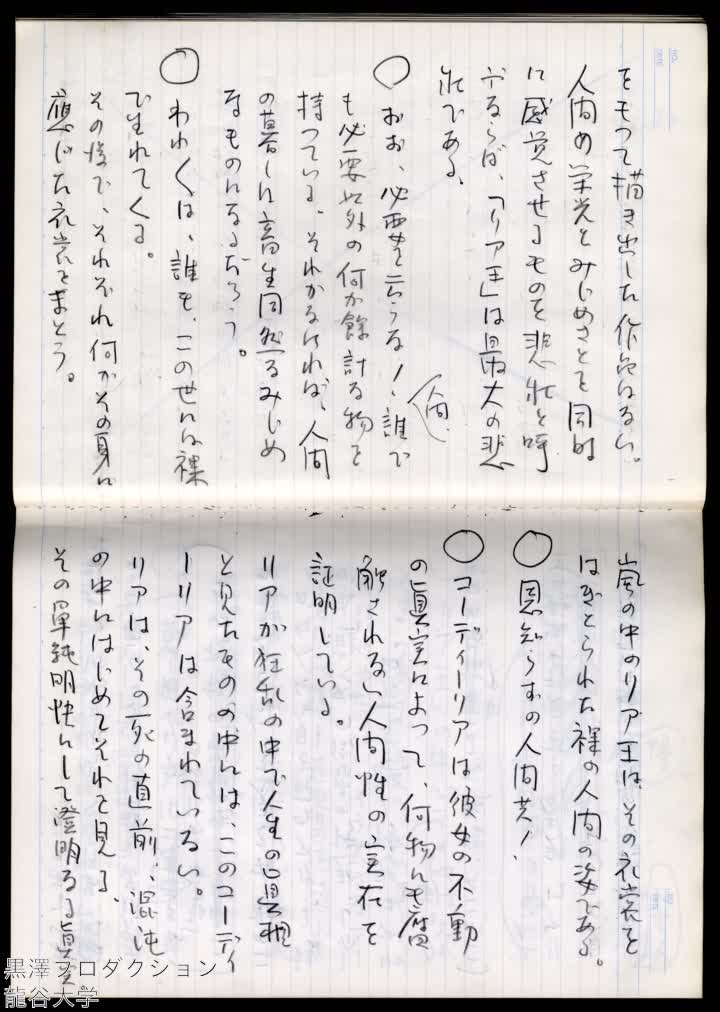 をもつて描き出した作品はない。
人間の栄光とみじめさとを同時
に感覚させるものを悲壮と呼
ぶならば、「リア王」は最大の悲
壮である。
(人間
○おお、必要を云うな！、誰で
も必要以外の何か餘計な物を
持つている。それがなければ、人間
の暮しは畜生同然なみじめ
なものになるだろう。
○われ〱は、誰も、この世には裸
で生れてくる。
その後で、それぞれ何かその身に
應じた衣裳をまとう。
嵐の中のリア王は、その衣裳を
はぎとられた裸の人間の姿である。
○恩知らずの人間共！
○コーディーリアは彼女の不動
の眞実によって、何物にも腐
蝕されない人間性の実在を
証明している。
リアが狂乱の中で人生の眞相
と見たものの中には、このコーディ
ーリアは含まれていない。
リアは、その死の直前、混沌
の中にはじめてそれを見る、
その單純明快にして澄明なる眞実
黒澤プロダクション
龍谷大学